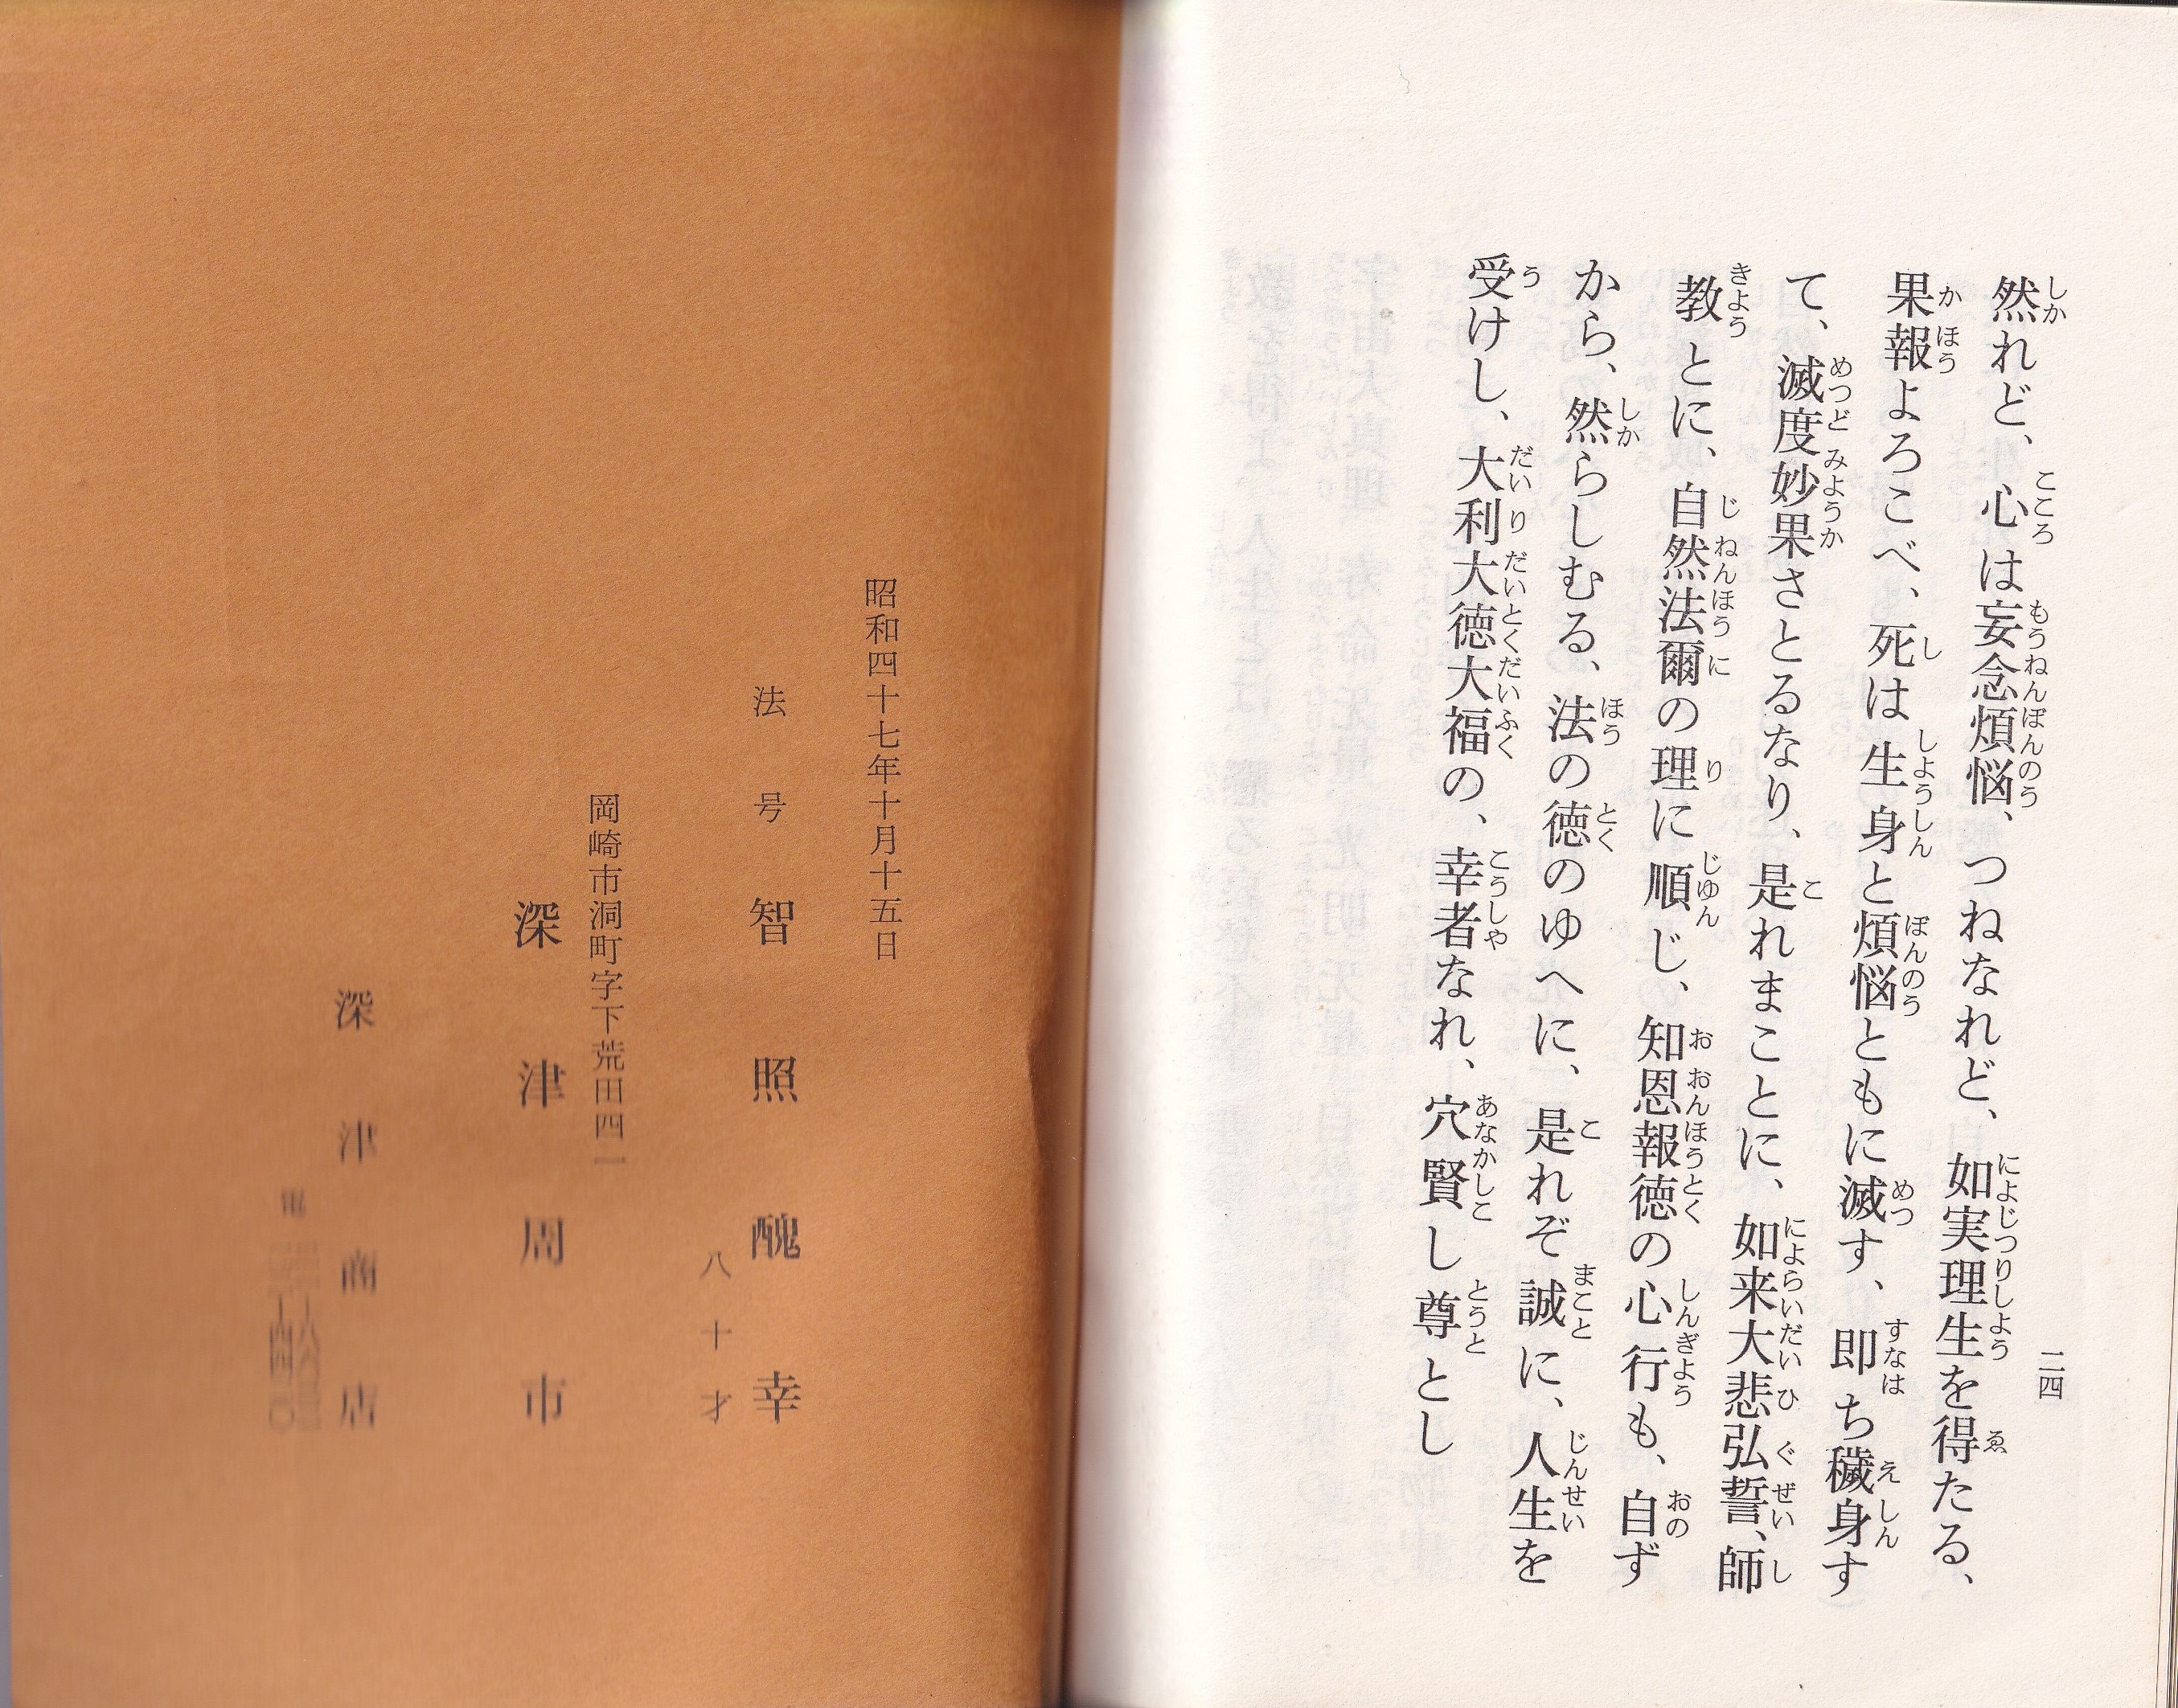 二四
然れど、心は妄念煩悩、つねなれど、如実理生を得たる、
果報よろこべ、死は生身と煩悩ともに滅す、即ち穢身す
て、滅度妙果さとるなり、是れまことに、如来大悲弘誓、師
教とに、自然法爾の理に順じ、知恩報徳の心行も、自ず
から、然らしむる、法の徳のゆへに、是れぞ誠に、人生を
受けし、大利大徳大福の、幸者なれ、穴賢し尊とし
昭和四十七年十月十五日
法号 智照醜幸
八十才
岡崎市洞町字下荒田四一
深津周市
深津商店